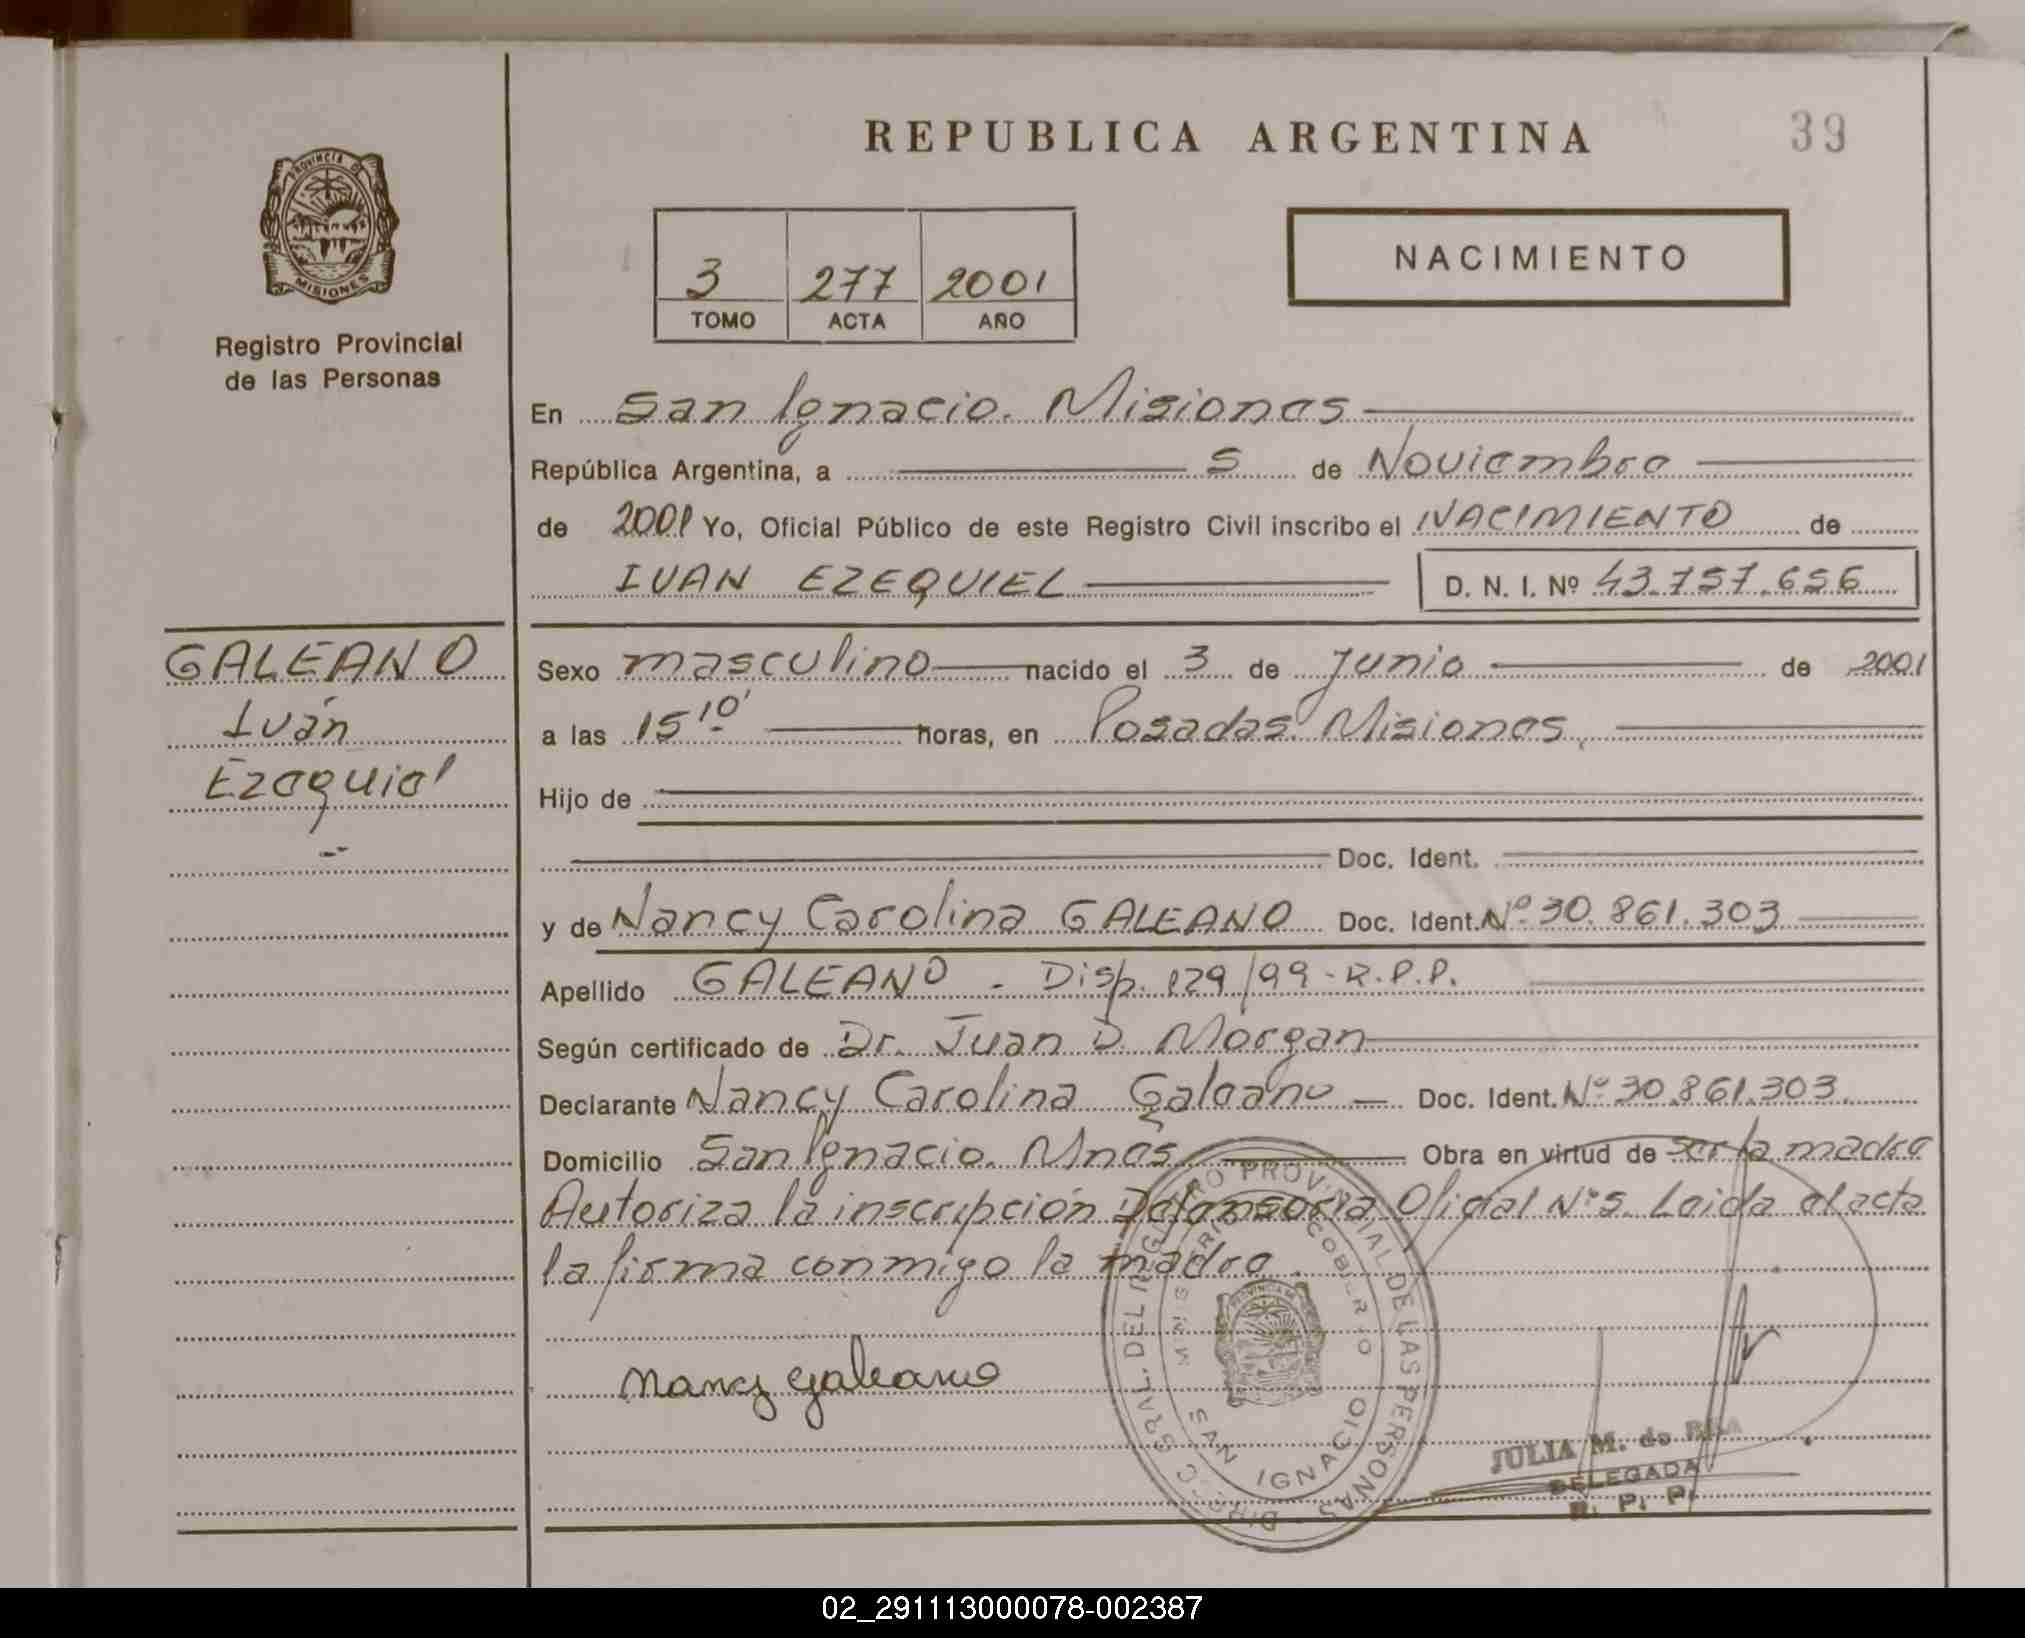 REPUBLICA ARGENTINA
39
PROVINCIA DE
MISIONES
Registro Provincial
de las Personas
3 277 2001
TOMO ACTA AÑO
NACIMIENTO
En San Ignacio. Misiones
República Argentina, a 5 de Noviembre
de 2001 Yo, Oficial Público de este Registro Civil inscribo el NACIMIENTO de
IVAN EZEQUIEL D. N. I. Nº 43.757.656
GALEANO
Iván
Ezequiel
Sexo masculino nacido el 3 de Junio de 2001
a las 15 10' horas, en Posadas. Misiones.
Hijo de
Doc. Ident.
y de Nancy Carolina GALEANO Doc. Ident. Nº 30.861.303
Apellido GALEANO - Disp. 129/99 - R.P.P.
Según certificado de Dr. Juan D. Morgan
Declarante Nancy Carolina Galeano Doc. Ident. Nº 30.861.303.
Domicilio San Ignacio. Mnes. Obra en virtud de ser la madre
Autoriza la inscripción Defensoría Oficial Nº 5. Leida el acta
la firma conmigo la madre.
Nancy Galeano
REGISTRO PROVINCIAL DE LAS PERSONAS
SAN IGNACIO
JULIA M. de
DELEGADA
R. P. P.
02_291113000078-002387